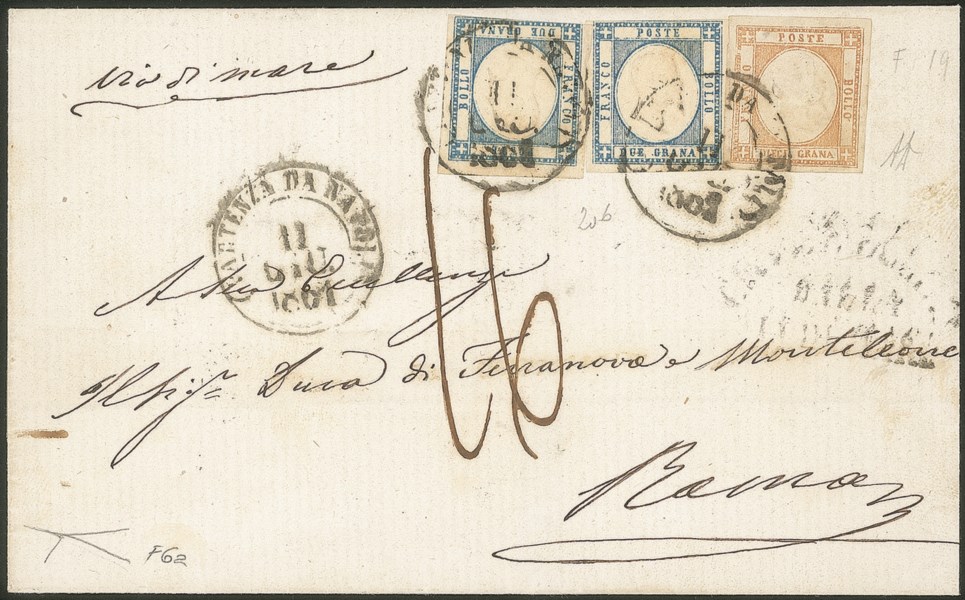 FRANCO BOLLO DUE GRANA
POSTE FRANCO BOLLO DUE GRANA
POSTE BOLLO GRANA
F. 19
via di mare
11
1861
DA
11
1861
AA
206
PARTENZA DA NAPOLI
11
GIU.
1861
A Sua Eccellenza
16
Il Sigr. Duca di Terranova e Monteleone
Roma
F62